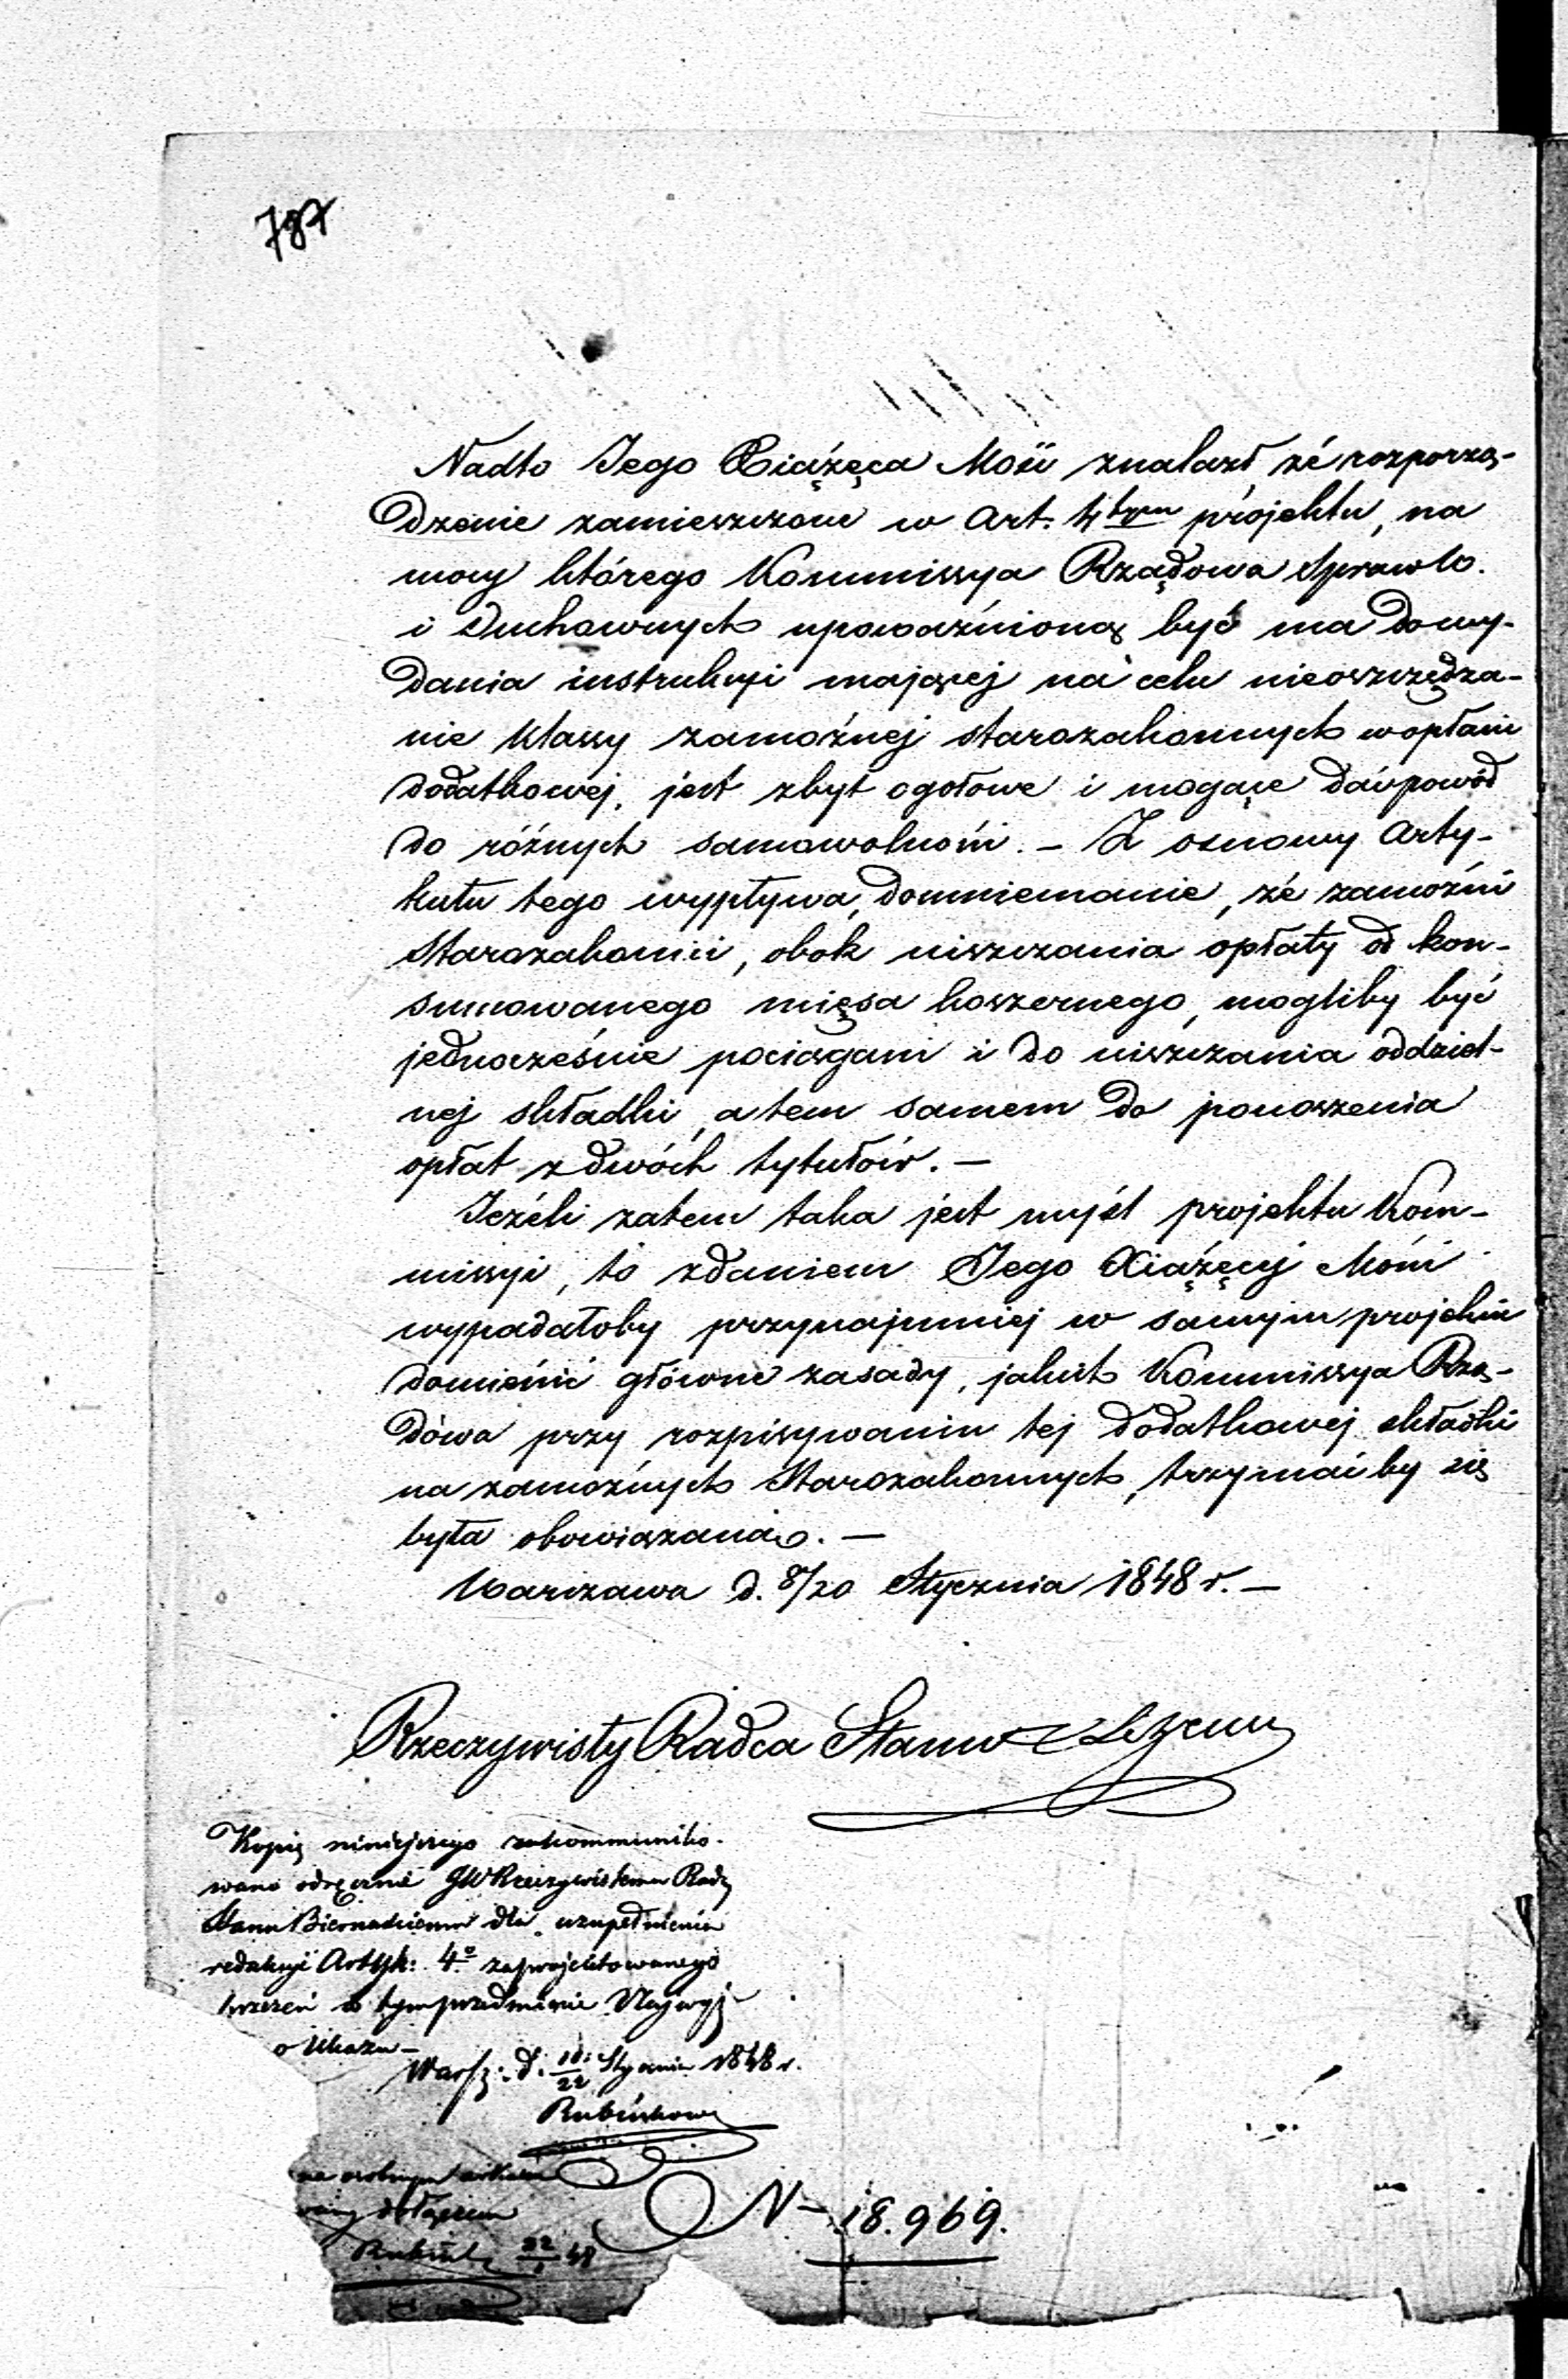 787
Nadto Jego Xiążęca Mość znalazł, że rozporzą-
dzenie zamieszczone w Art. 4tym projektu, na
mocy którego Kommissya Rządowa Spraw W.
i Duchownych upoważnioną być ma do wy-
dania instrukcyi mającej na celu nieoszczędza-
nie klassy zamożnej starozakonnych w opłacie
dodatkowej, jest zbyt ogołowe i mogące dać powód
do różnych samowolności. – Z osnowy Arty-
kułu tego wypływa domniemanie, że zamożni
Starozakonni, obok uiszczania opłaty od kon-
sumowanego mięsa koszernego, mogliby być
jednocześnie pociągani i do uiszczania oddziel-
nej składki, a tem samem do ponoszenia
opłat z dwóch tytułów. –
Jeżeli zatem taka jest myśl projektu Kom-
missyi, to zdaniem Jego Xiążęcej Mości
wypadałoby przynajmniej w samym projekcie
domieścić główne zasady, jakich Kommissya Rzą-
dowa przy rozpisywaniu tej dodatkowej składki
na zamożnych Starozakonnych, trzymać by się
była obowiązaną. –
Warszawa d. 8/20 Stycznia 1848 r. –
Rzeczywisty Radca Stanu
Kopię niniejszego zakommuniko-
wano odręcznie JW Rzeczywistemu Radcy
Stanu Biernackiemu dla uzupełnienia
redakcyi Artyk: 4º zaprojektowanego
w tym przedmiocie Najwyż
o Ukazu –
Warsz: d. 10/22 Stycznia 1848 r.
na osobnym arkuszu
dołączam
22/1 48
N – 18.969.